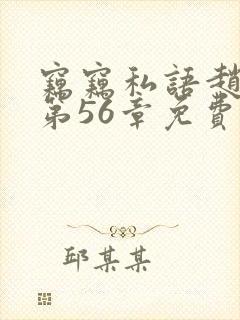 竊竊私語趙
第56章免費
邱某某